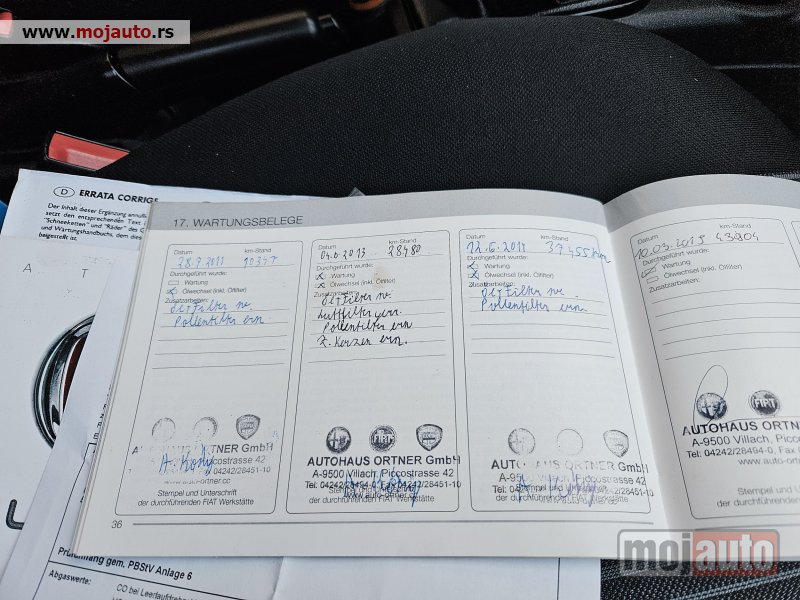 www.mojauto.rs
D ERRATA CORRIGE
Der Inhalt dieser Ergänzung
setzt den entsprechenden Text
"Schneeketten" und "Räder" des
und Wartungshandbuch, dem
beigestellt ist.
A T
17. WARTUNGSBELEGE
Datum km-Stand
28.7.2011
Durchgeführt wurde:
Wartung
Ölwechsel (inkl. Ölfilter)
Zusatzarbeiten:
Ölfilter
Pollenfilter ern.
ORTNER GmbH
Piccostrasse 42
Tel. 04242/28451-10
auto-ortner.cc
Stempel und Unterschrift
der durchführenden FIAT Werkstätte
36
Datum km-Stand
04.6.2013 28480
Durchgeführt wurde:
Wartung
Ölwechsel (inkl. Ölfilter)
Zusatzarbeiten:
Ölfilter
Luftfilter ern.
Pollenfilter ern
Z. Kerzen ern.
FIAT
AUTOHAUS ORTNER GmbH
A-9500 Villach, Piccostrasse 42
Tel: 04242/28494-0, Fax 04242/28451-10
www.auto-ortner.cc
Stempel und Unterschrift
der durchführenden FIAT Werkstätte
Datum km-Stand
37455 km
Durchgeführt wurde:
Wartung
Ölwechsel (inkl. Ölfilter)
Zusatzarbeiten:
Ölfilter
Pollenfilter ern.
AUTOHAUS ORTNER GmbH
A-9500 Villach, Piccostrasse 42
Tel: 04242/28494-0, Fax 04242/28451-10
Stempel und Unterschrift
der durchführenden FIAT Werkstätte
Datum km-Stand
43904
Durchgeführt wurde:
Wartung
Ölwechsel (inkl. Ölfilter)
Zusatzarbeiten:
FIAT
AUTOHAUS ORTNER
A-9500 Villach, Piccostrasse
Tel: 04242/28494-0, Fax
www.auto-ortner
Stempel und Unterschrift
der durchführenden FIAT
Prüfumfang gem. PBStV Anlage 6
Abgaswerte:
CO bei Leerlaufdrehzahl
mojauto